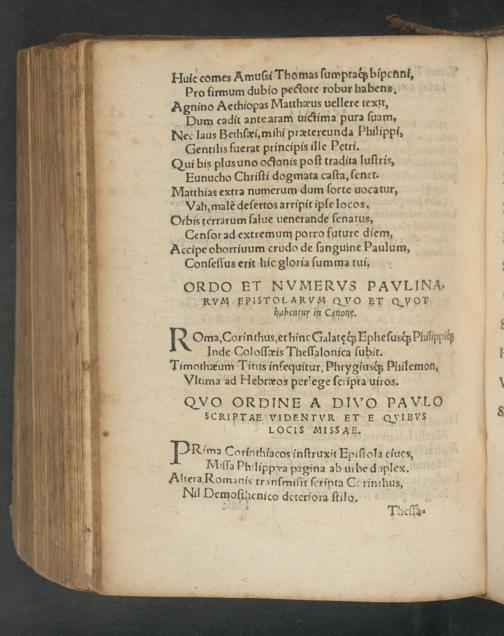 Huic comes Amußi Thomas sumptaq́; bipenni,
Pro firmum dubio pectore robur habens.
Agnino Aethiopas Matthæus uellere texit,
Dum cadit ante aram uictima pura suam.
Nec laus Bethsæi, mihi prætereunda Philippi,
Gentilis fuerat principis ille Petri.
Qui bis plus uno octonis post tradita lustris,
Eunucho Christi dogmata casta, senet.
Matthias extra numerum dum sorte uocatur,
Vah, malè desertos arripit ipse locos.
Orbis terrarum salue uenerande senatus,
Censor ad extremum porro future diem,
Accipe obortiuum crudo de sanguine Paulum,
Consessus erit hic gloria summa tui.
ORDO ET NVMERVS PAVLINA-
RVM EPISTOLARVM QVO ET QVOT
habentur in Canone.
ROma, Corinthus, et hinc Galatęq́; Ephesusq́; Philippiq́;
Inde Colossæis Thessalonica subit.
Timothæum Titus insequitur, Phrygiusq́; Philemon,
Vltima ad Hebræos perlege scripta uiros.
QVO ORDINE A DIVO PAVLO
SCRIPTAE VIDENTVR ET E QVIBVS
LOCIS MISSAE.
PRima Corinthiacos instruxit Epistola ciues,
Missa Philippæa pagina ab urbe duplex.
Altera, Romanis transmisit scripta Corinthus,
Nil Demosthenico deteriora stilo.
Thessa-